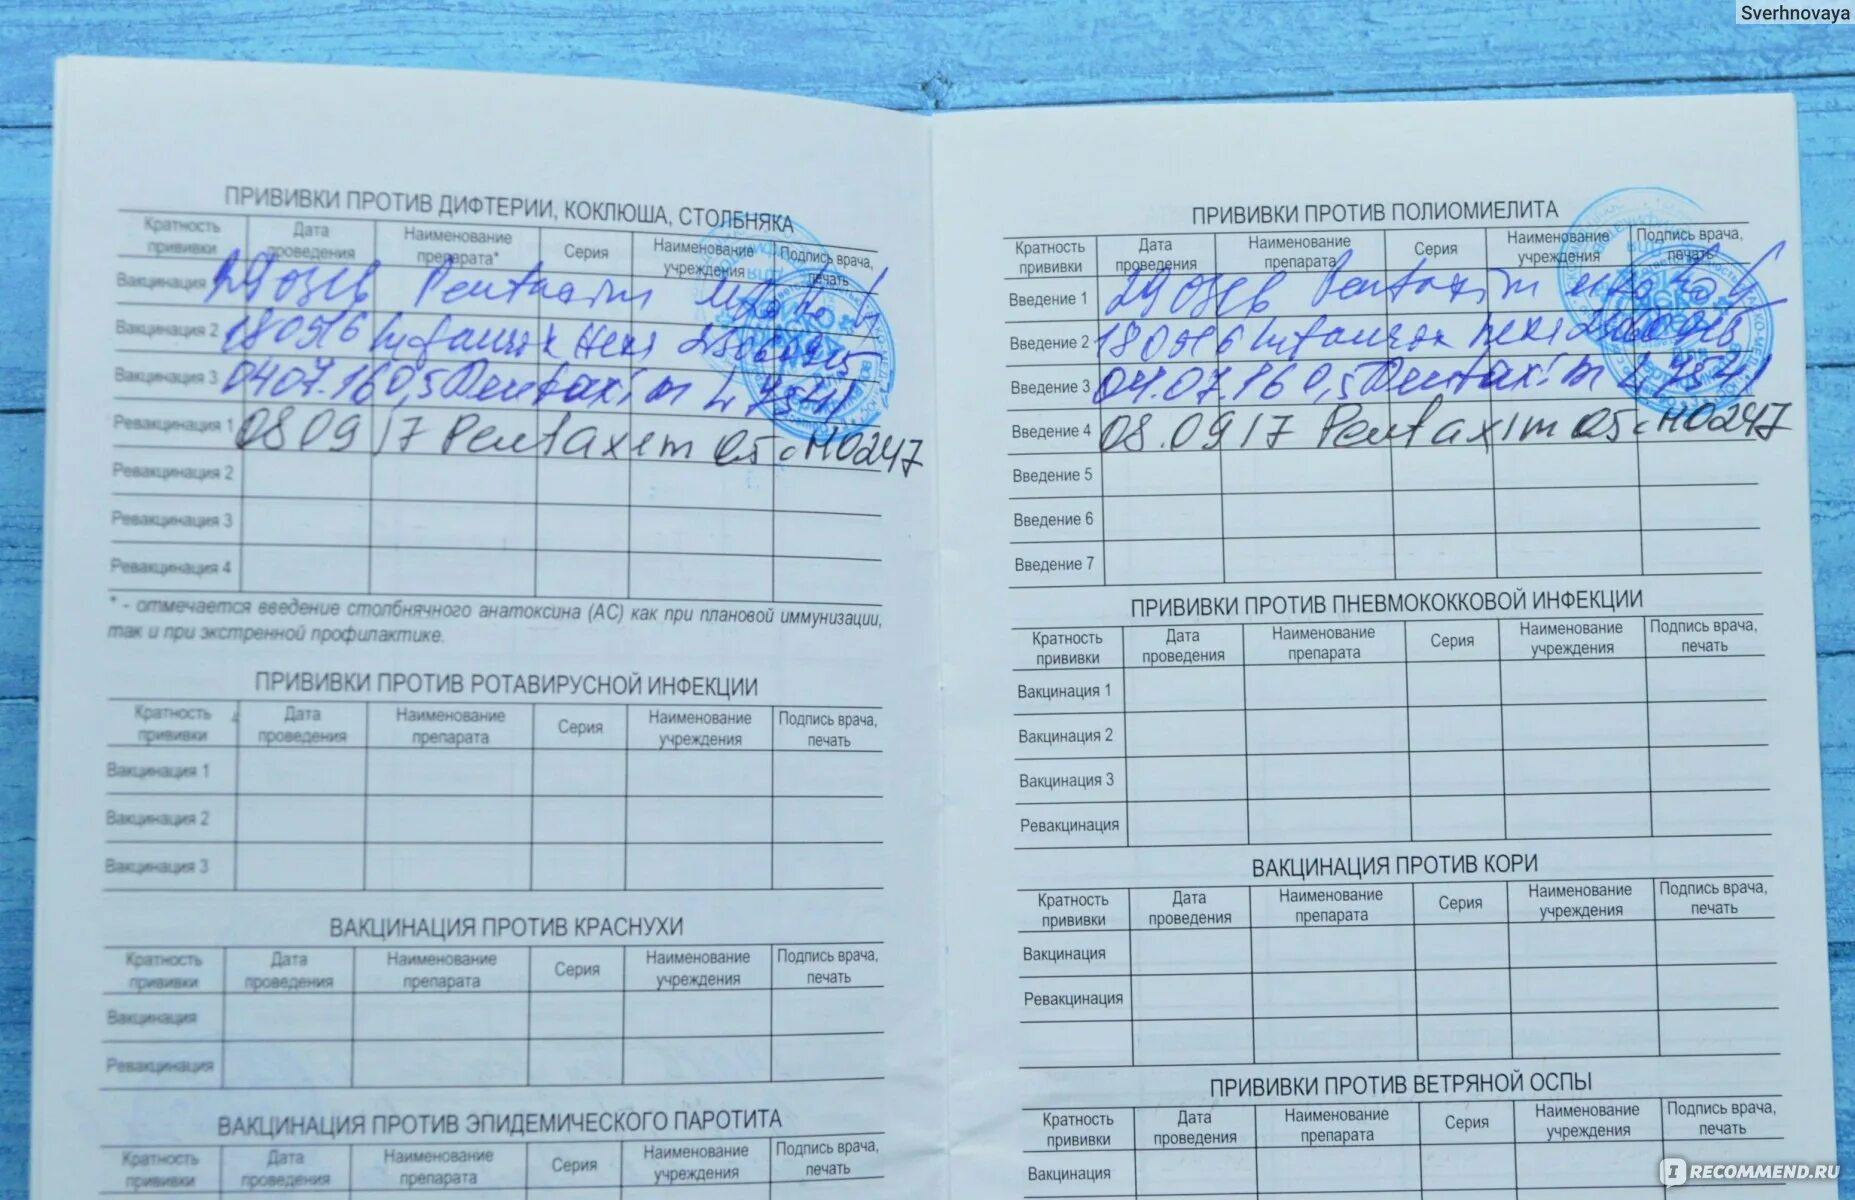 Sverhnovaya
ПРИВИВКИ ПРОТИВ ДИФТЕРИИ, КОКЛЮША, СТОЛБНЯКА
Кратность прививки Дата проведения Наименование препарата* Серия Наименование учреждения Подпись врача, печать
Вакцинация Pentaxim
Вакцинация 2 180516 Инфанрикс Гекса
Вакцинация 3 0407.16 0,5 Pentaxim
Ревакцинация 1 08 09 17 Pentaxim 05 с М0247
Ревакцинация 2
Ревакцинация 3
Ревакцинация 4
* - отмечается введение столбнячного анатоксина (АС) как при плановой иммунизации,
так и при экстренной профилактике.
ПРИВИВКИ ПРОТИВ РОТАВИРУСНОЙ ИНФЕКЦИИ
Кратность прививки Дата проведения Наименование препарата Серия Наименование учреждения Подпись врача, печать
Вакцинация 1
Вакцинация 2
Вакцинация 3
ВАКЦИНАЦИЯ ПРОТИВ КРАСНУХИ
Кратность прививки Дата проведения Наименование препарата Серия Наименование учреждения Подпись врача, печать
Вакцинация
Ревакцинация
ВАКЦИНАЦИЯ ПРОТИВ ЭПИДЕМИЧЕСКОГО ПАРОТИТА
Кратность прививки Дата проведения Наименование препарата Серия Наименование учреждения Подпись врача, печать
ПРИВИВКИ ПРОТИВ ПОЛИОМИЕЛИТА
Кратность прививки Дата проведения Наименование препарата Серия Наименование учреждения Подпись врача, печать
Введение 1 Pentaxim
Введение 2 180516 Инфанрикс
Введение 3 04.07.16 0,5 Pentaxim
Введение 4 08.09 17 Pentaxim 05 с М0247
Введение 5
Введение 6
Введение 7
ПРИВИВКИ ПРОТИВ ПНЕВМОКОККОВОЙ ИНФЕКЦИИ
Кратность прививки Дата проведения Наименование препарата Серия Наименование учреждения Подпись врача, печать
Вакцинация 1
Вакцинация 2
Вакцинация 3
Ревакцинация
ВАКЦИНАЦИЯ ПРОТИВ КОРИ
Кратность прививки Дата проведения Наименование препарата Серия Наименование учреждения Подпись врача, печать
Вакцинация
Ревакцинация
ПРИВИВКИ ПРОТИВ ВЕТРЯНОЙ ОСПЫ
Кратность прививки Дата проведения Наименование препарата Серия Наименование учреждения Подпись врача, печать
Вакцинация
IRECOMMEND.RU